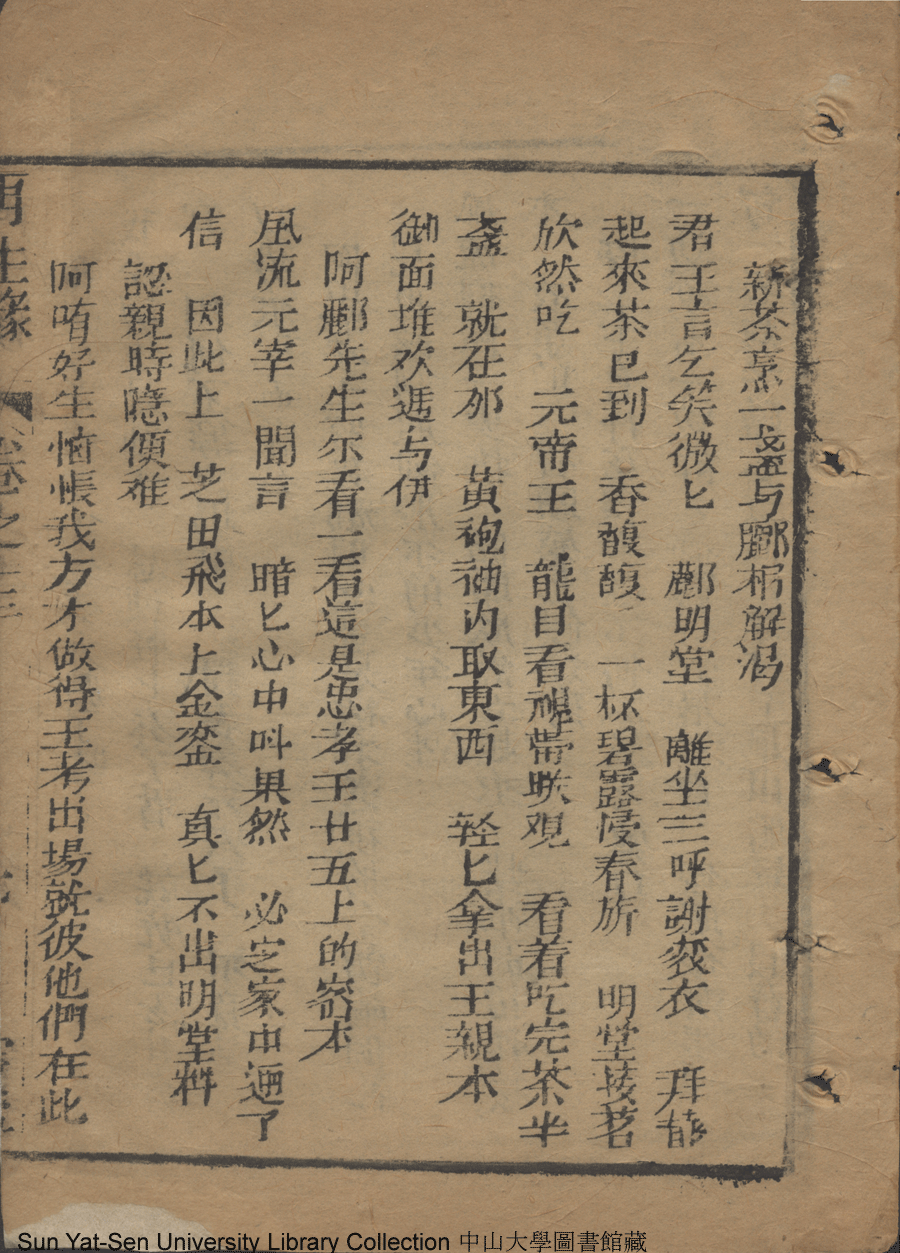 新茶烹一盞与酈相解渴
君王言乞笑微匕 酈明堂 離坐三呼謝袞衣 拜龍
起來茶已到 香馥馥 一杯碧露侵春旂 明堂接茗
欣然吃 元帝王 龍目看覷帶咲观 看着吃完茶半
盞 就在那 黃袍袖内取東西 轻匕拿出王親本
御面堆欢遞与伊
阿酈先生尔看一看這是忠孝王廿五上的宻本
風流元宰一聞言 暗匕心中呌果然 必定家中廼了
信 因此上 芝田飛本上金銮 真匕不出明堂料
認親時隱便难
阿唷好生恼悵我方才做得王考出場就彼他們在此
再生緣 卷之十三
Sun Yat-Sen University Library Collection 中山大學圖書館藏